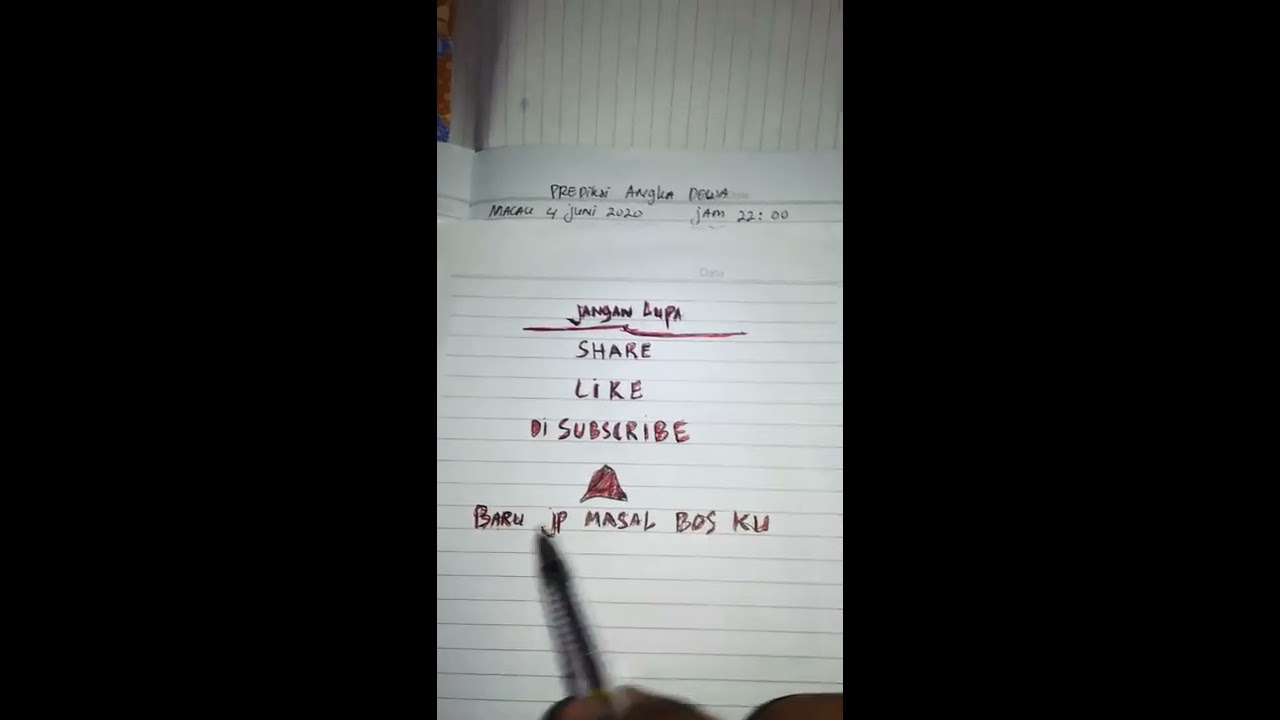 PREDiksi ANgkA DEWA
MACAU 4 juNi 2020 jAM 22:00
Date
jANGAN LupA
SHARE
LiKE
Di SUBSCRiBE
BARU jP MASAL BOS KU